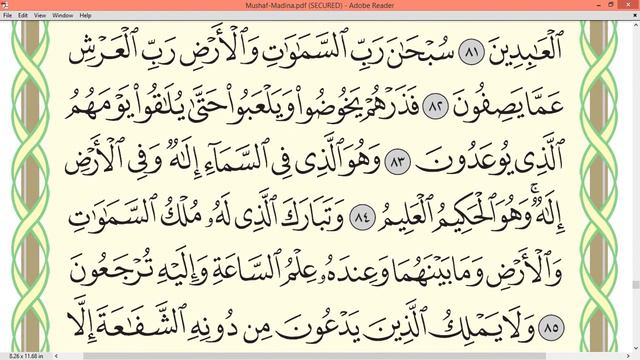 Mushaf-Madina.pdf (SECURED) - Adobe Reader
File Edit View Window Help
ٱلْعَٰبِدِينَ ٨١ سُبْحَٰنَ رَبِّ ٱلسَّمَٰوَٰتِ وَٱلْأَرْضِ رَبِّ ٱلْعَرْشِ
عَمَّا يَصِفُونَ ٨٢ فَذَرْهُمْ يَخُوضُوا۟ وَيَلْعَبُوا۟ حَتَّىٰ يُلَٰقُوا۟ يَوْمَهُمُ
ٱلَّذِى يُوعَدُونَ ٨٣ وَهُوَ ٱلَّذِى فِى ٱلسَّمَآءِ إِلَٰهٌ وَفِى ٱلْأَرْضِ
إِلَٰهٌ ۚ وَهُوَ ٱلْحَكِيمُ ٱلْعَلِيمُ ٨٤ وَتَبَارَكَ ٱلَّذِى لَهُۥ مُلْكُ ٱلسَّمَٰوَٰتِ
وَٱلْأَرْضِ وَمَا بَيْنَهُمَا وَعِندَهُۥ عِلْمُ ٱلسَّاعَةِ وَإِلَيْهِ تُرْجَعُونَ
٨٥ وَلَا يَمْلِكُ ٱلَّذِينَ يَدْعُونَ مِن دُونِهِ ٱلشَّفَٰعَةَ إِلَّا
8.26 x 11.68 in